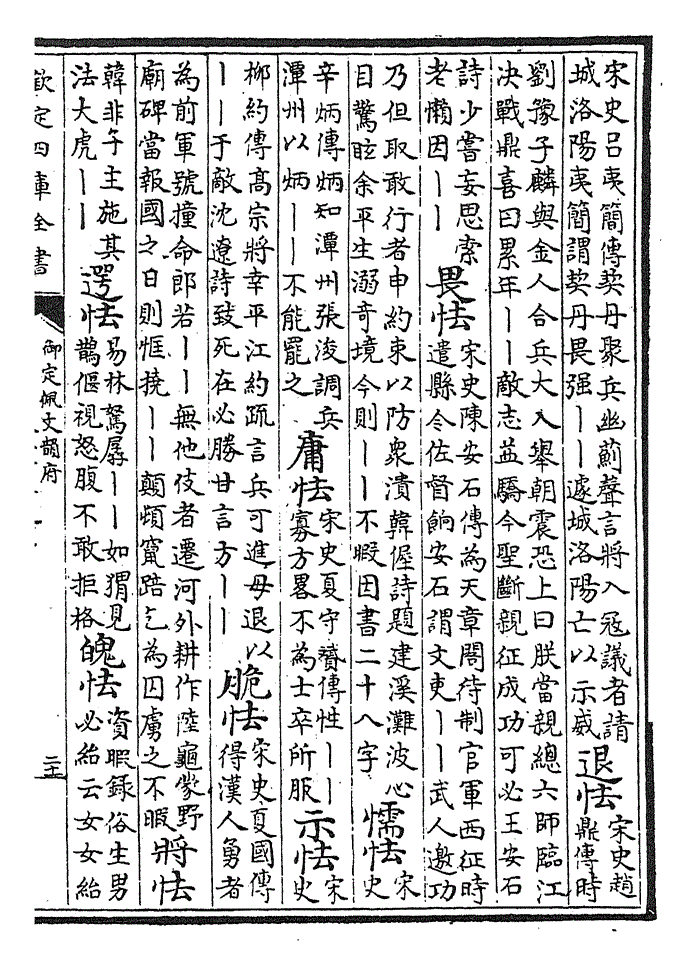 宋史吕夷簡傳契丹聚兵幽薊聲言將入冦議者請
城洛陽夷簡謂契丹畏强丨丨遽城洛陽亡以示威
退怯
宋史趙
鼎傳時
劉豫子麟與金人合兵大入舉朝震恐上曰朕當親總六師臨江
决戰鼎喜曰累年丨丨敵志益驕今聖斷親征成功可必王安石
詩少嘗妄思索
老懶因丨丨
畏怯
宋史陳安石傳為天章閣待制官軍西征時
遣縣令佐督餉安石謂文吏丨丨武人邀功
乃但取敢行者申約束以防衆潰韓偓詩題建溪灘波心
目驚眩余平生溺奇境今則丨丨不暇因書二十八字
懦怯
宋
史
辛炳傳炳知潭州張浚調兵
潭州以炳丨丨不能罷之
庸怯
宋史夏守贇傳性丨丨
寡方畧不為士卒所服
示怯
宋
史
柳約傳高宗將幸平江約疏言兵可進毋退以
丨丨于敵沈遼詩致死在必勝甘言方丨丨
脆怯
宋史夏國傳
得漢人勇者
為前軍號撞命郎若丨丨無他伎者遷河外耕作陸龜蒙野
廟碑當報國之日則恇撓丨丨顛頓竄踣乞為囚虜之不暇
將怯
韓非子主施其
法大虎丨丨
遌怯
易林駑孱丨丨如猬見
鵲偃視怒腹不敢拒格
魄怯
資暇錄俗生男
必紿云女女紿
欽定四庫全書
御定佩文韻府